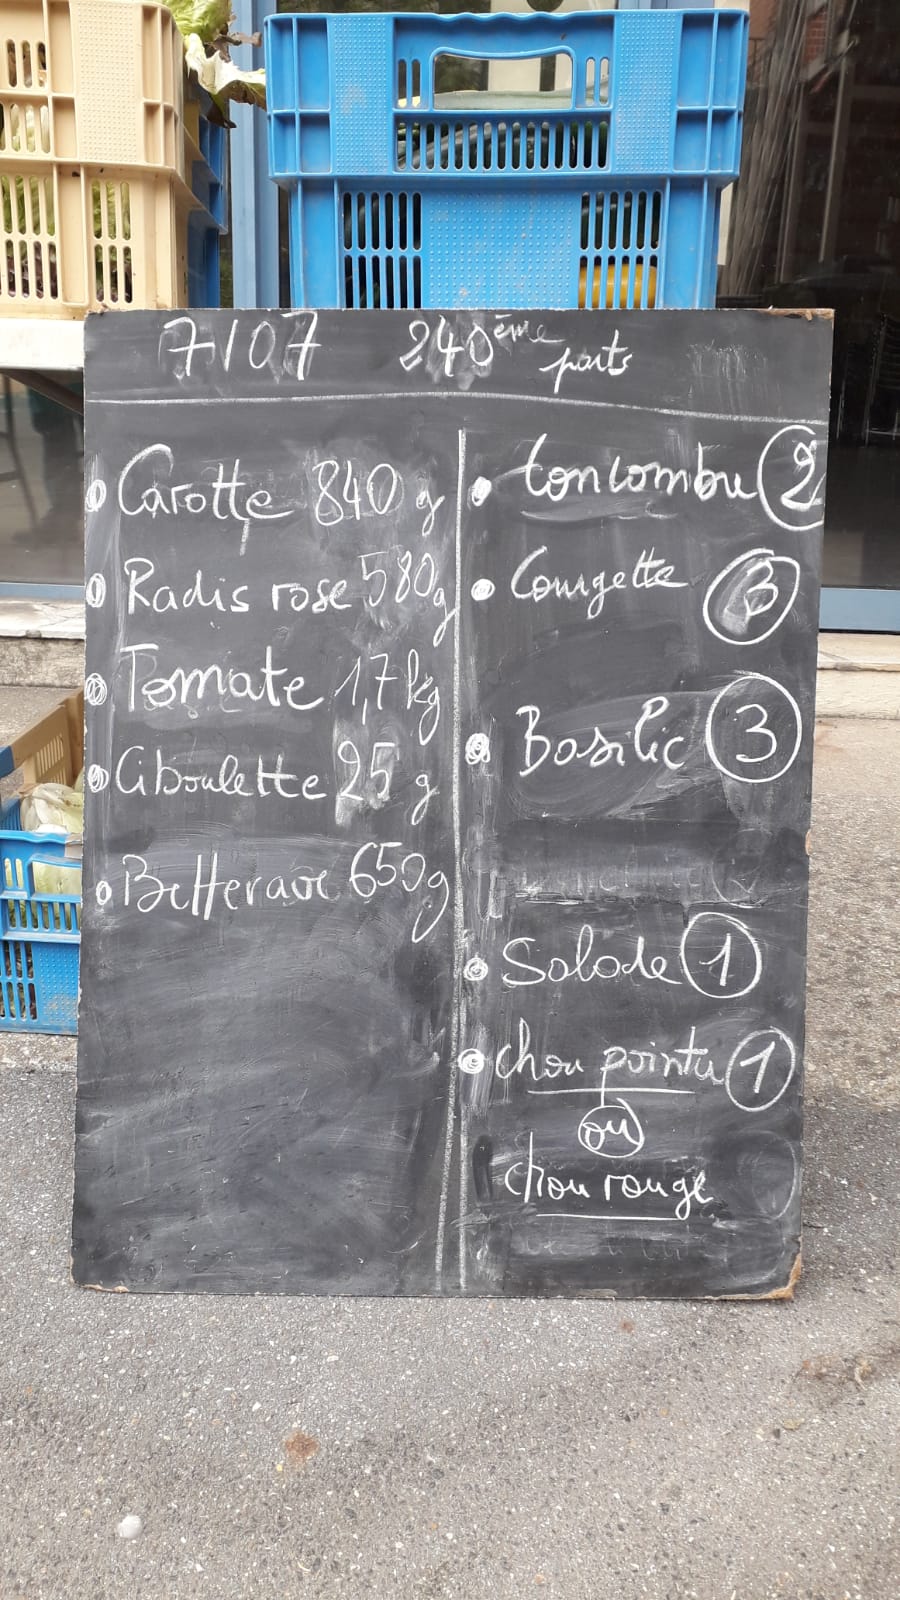 7/07 240ème parts
Carotte 840 g
Radis rose 580g
Tomate 1,7 kg
Ciboulette 25 g
Betterave 650g
Concombre 2
Courgette 3
Basilic 3
Salade 1
chou pointu 1
ou
chou rouge